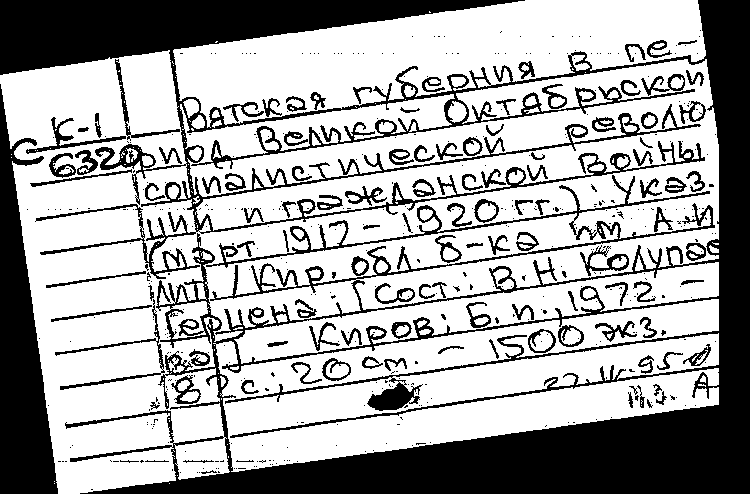 Вятская губерния в пе-
К-1
риод Великой Октябрьской
С 6320
социалистической револю-
ции и гражданской войны
(март 1917 - 1920 гг.) : Указ.
лит. / Кир. обл. б-ка им. А. И.
Герцена ; [Сост.: В. Н. Колупае
ва]. - Киров : Б. и., 1972. -
82 с. ; 20 см. - 1500 экз.
А